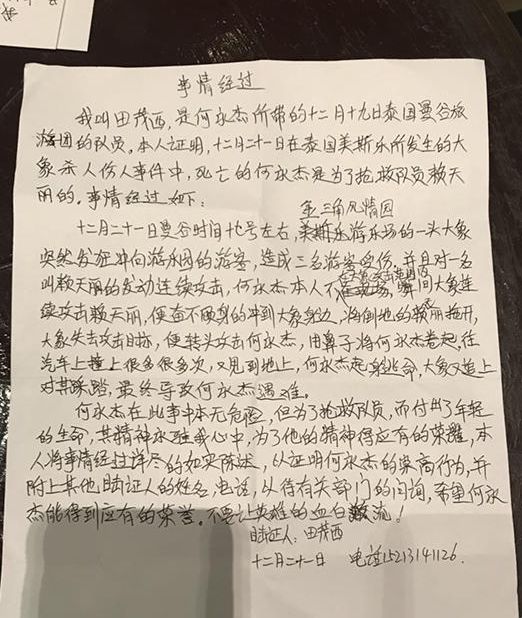 事情经过
我叫田茂西，是何永杰所带的十二月十九日泰国曼谷旅
游团的队员。本人证明，十二月二十一日在泰国美斯乐所发生的大
象杀人伤人事件中，死亡的何永杰是为了抢救队员赖天
丽的。事情经过如下：
金三角风情园
十二月二十一日曼谷时间 左右，美斯乐游乐场的一头大象
突然发狂冲向游乐园的游客，造成三名游客受伤，并且对一名
叫赖天丽的发动连续攻击，何永杰本人不在现场，瞬间大象连
续攻击赖天丽，便奋不顾身的冲到大象身边，将倒地的赖丽拖开，
大象失去攻击目标，便转头攻击何永杰，由鼻子将何永杰卷起，往
汽车上撞上很多很多次，又 到地上，何永杰起身逃命，大象又追上
对其踩踏，最终导致何永杰遇难。
何永杰在此事中本无危险，但为了抢救队员，而付出了年轻
的生命，其精神永驻我心中，为了他的精神得应有的荣耀，本
人将事情经过详尽的如实陈述，以证明何永杰的崇高行为，并
附上其他 证人的姓名，电话，以待有关部门的问询，希望何永
杰能得到应有的荣誉。不要让英雄的血白 流！
证人：田茂西
十二月二十一日 电话15213141126.